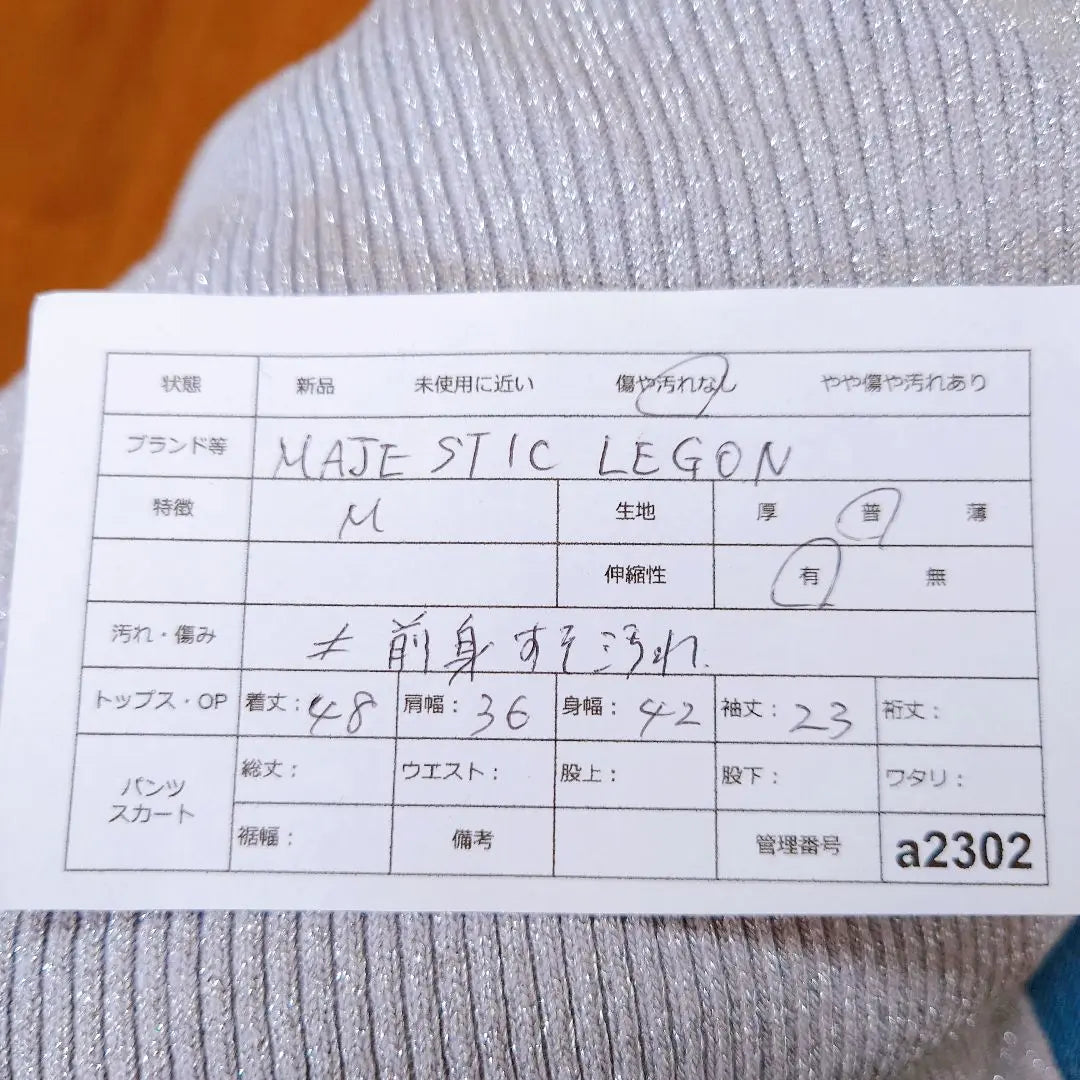 状態 新品 未使用に近い 傷や汚れなし やや傷や汚れあり
ブランド等 MAJESTIC LEGON
特徴 M 生地 厚 普 薄
伸縮性 有 無
汚れ・傷み 前身すそ汚れ.
トップス・OP 着丈:48 肩幅:36 身幅:42 袖丈:23 裄丈:
パンツ スカート 総丈: ウエスト: 股上: 股下: ワタリ:
裾幅: 備考 管理番号 a2302